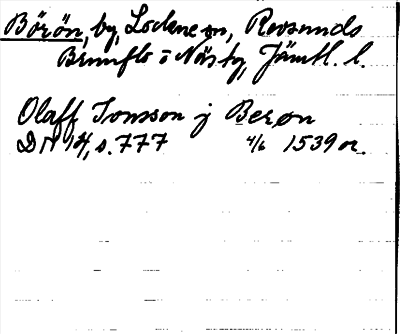 Börön, by, Lockne sn, Revsunds
Brunflo o Näs tg, Jämtl. l.
Olaff Jonsson j Berøn
DN 14, s. 777 4/6 1539 or.